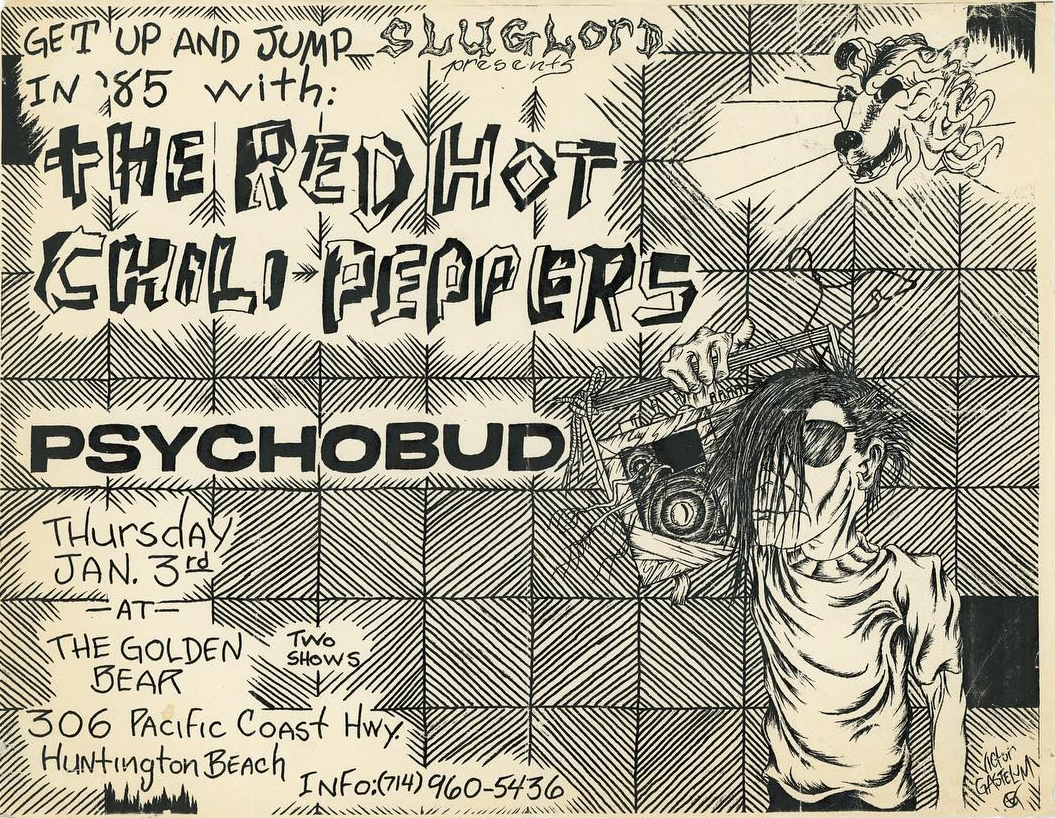 GET UP AND JUMP
IN '85 with:
SLUGLORD
presents
THE RED HOT
CHILI PEPPERS
PSYCHOBUD
Thursday
JAN. 3rd
—AT—
THE GOLDEN
BEAR
TWO
SHOWS
306 Pacific Coast Hwy.
Huntington Beach
INFO:(714) 960-5436
Victor
GASTELUM